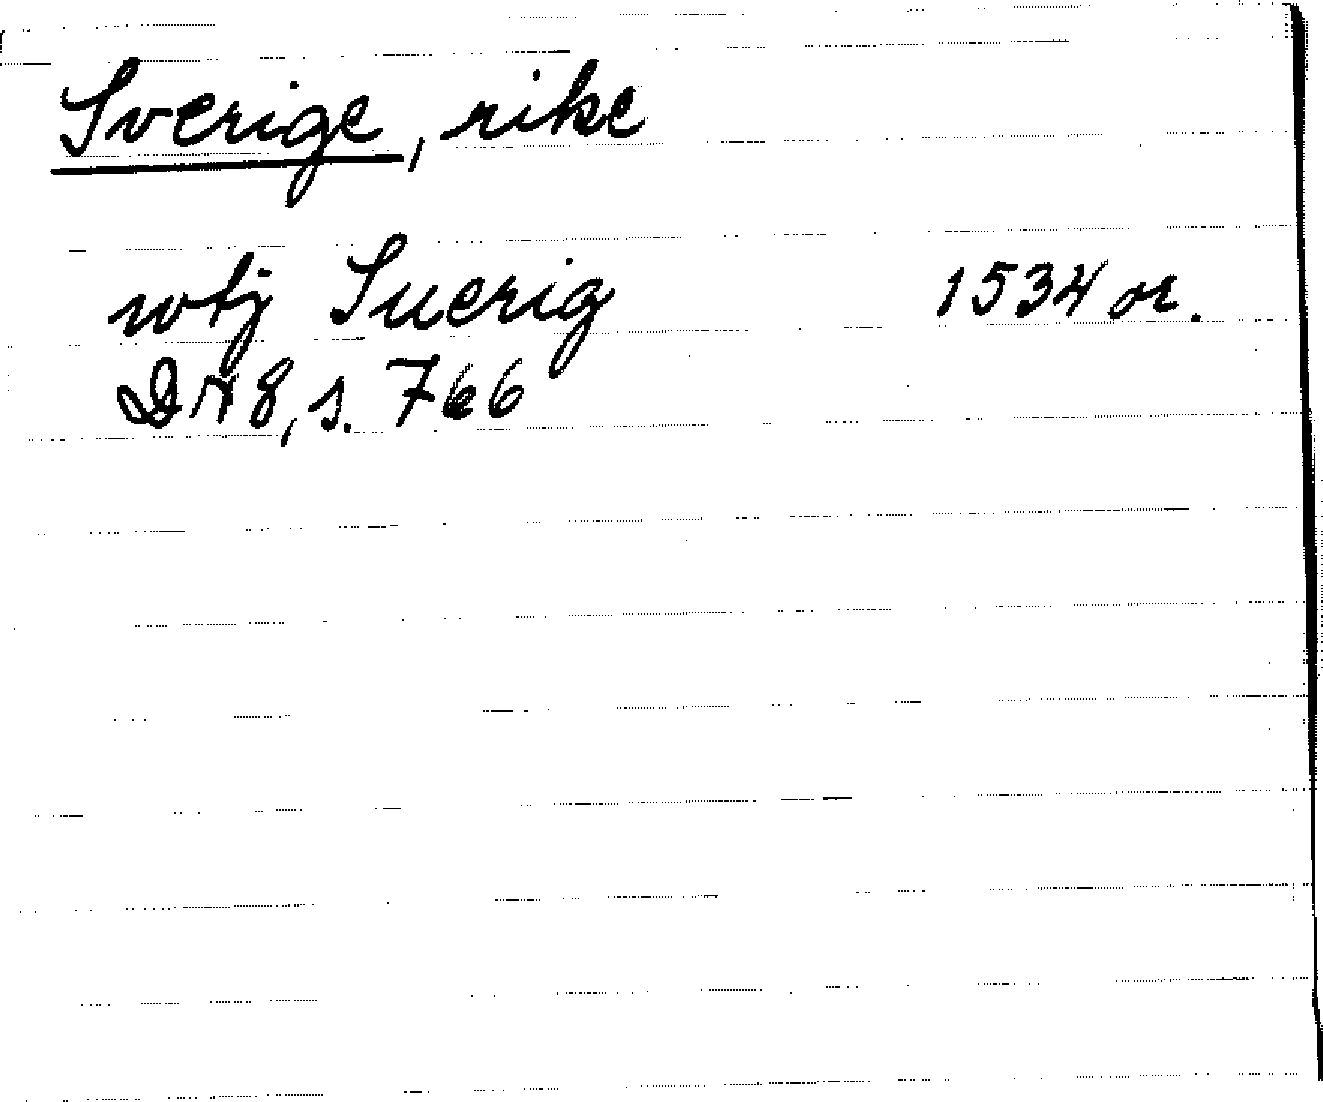 Sverige, rike
wtj Suerig 1534 or.
DN 8, s. 766